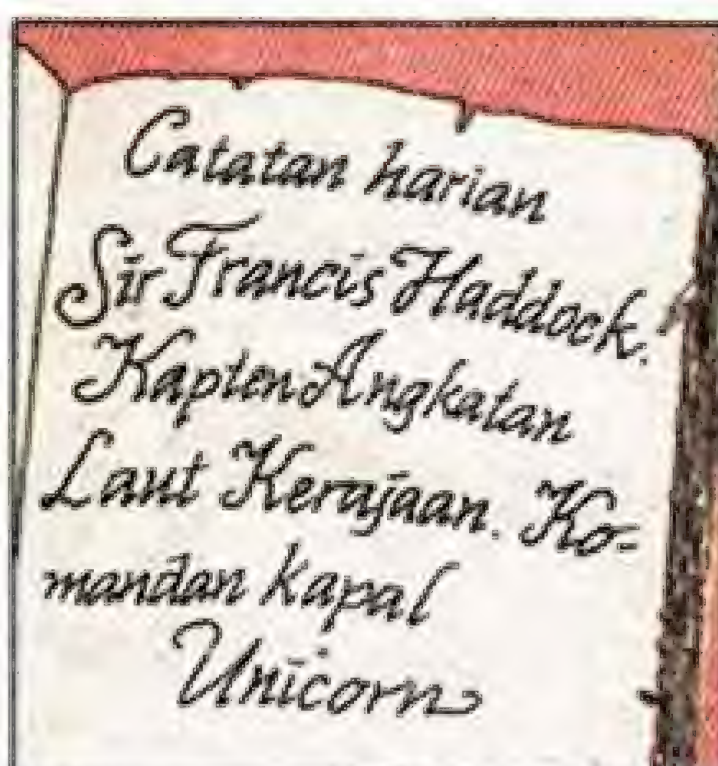 Catatan harian
Sir Francis Haddock.
Kapten Angkatan
Laut Kerajaan. Ko-
mandan kapal
Unicorn